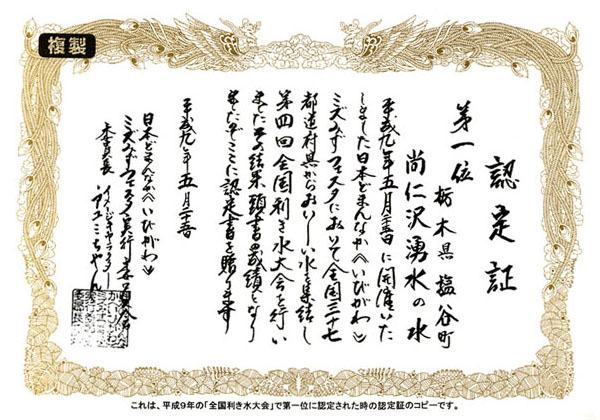 複製
認定証
第一位
栃木県 塩谷町
尚仁沢湧水の水
平成九年五月二十五日に開催いた
しました日本どまんなか＜いびがわ＞
ミズみずフェスタにおいて全国三十七
都道村県からおいしい水を集結し
第四回全国利き水大会を行い
ました その結果 頭書の成績となり
ましたぞここに認定書を贈ります
平成九年五月二十五日
日本どまんなか＜いびがわ＞
ミズみずフェスタ実行委員会
委員長 イメージキャラクター
これは、平成9年の「全国利き水大会」で第一位に認定された時の認定証のコピーです。